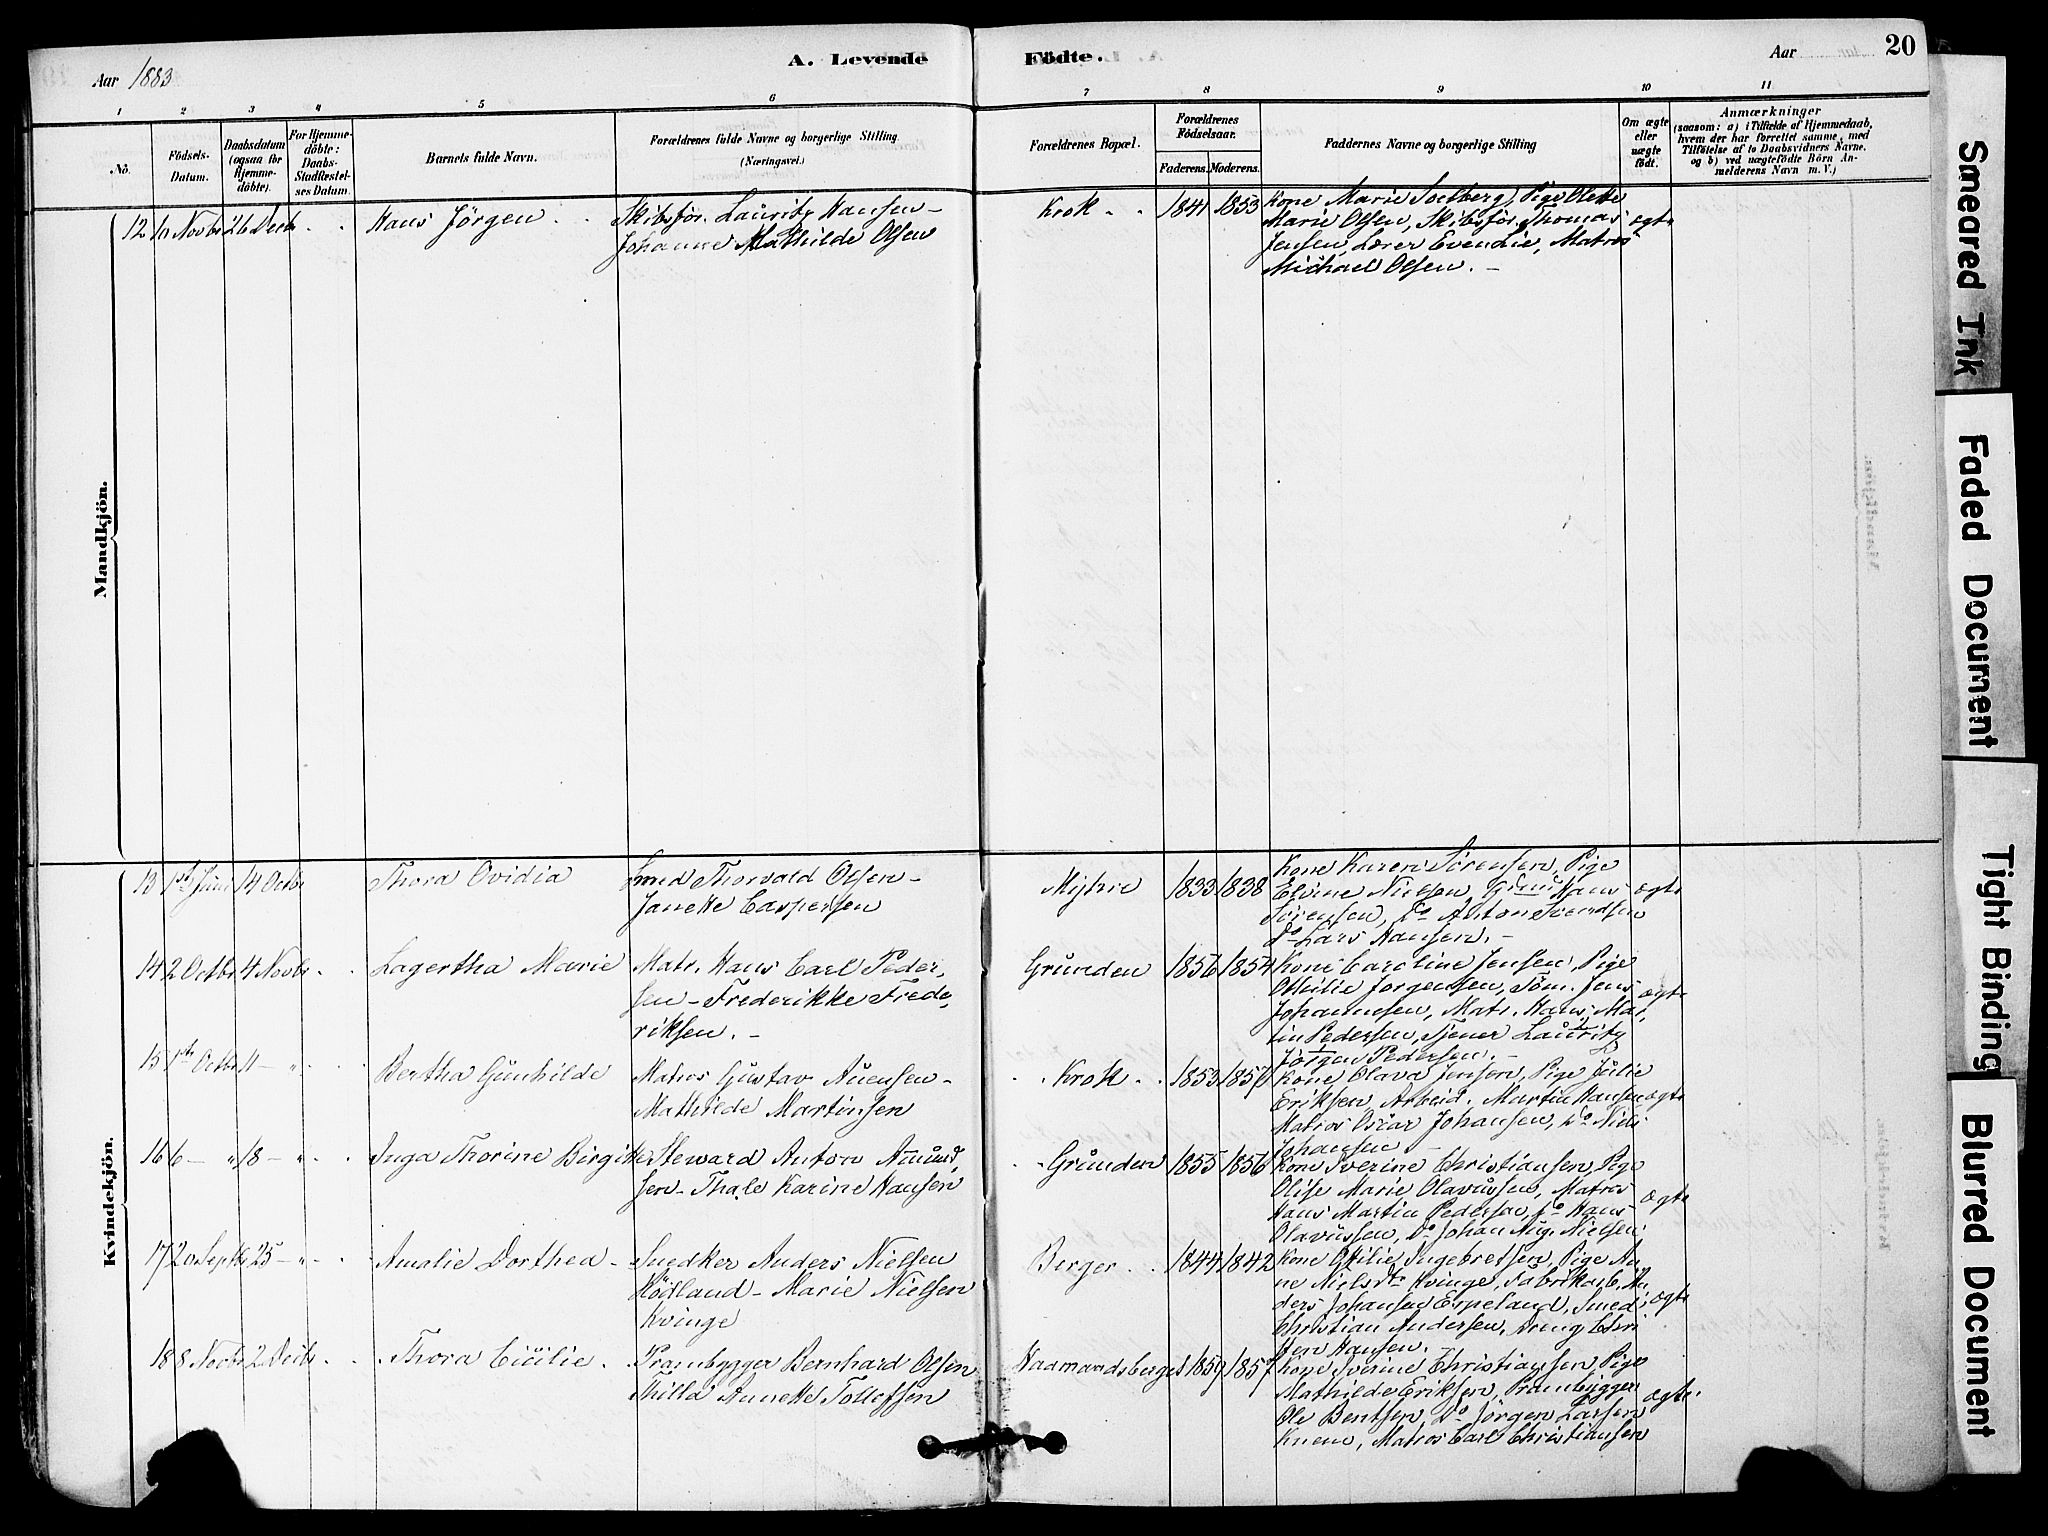 Aar 1883
A. Levende
Födte.
Aar
20
1 2 3 4 5 6 7 8 9 10 11
No.
Födsels-
Datum.
Daabsdatum
(ogsaa for
Hjemme-
döbte).
For Hjemme-
döbte:
Daabs-
Stadfæstel-
ses Datum
Barnets fulde Navn.
Forældrenes fulde Navne og borgerlige Stilling.
(Næringsvei.)
Forældrenes Bopæl.
Forældrenes
Födselsaar.
Faderens. Moderens.
Faddernes Navne og borgerlige Stilling
Om ægte
eller
uægte
født.
Anmærkninger
(saasom: a) i Tilfælde af Hjemmedaab,
hvem der har forrettet samme, med
Tilföielse af to Daabsvidners Navne,
og b) ved uægtefödte Börn An-
melderens Navn m. V.)
Mandkjön.
12 10 Novbr 26 Decbr
Hans Jörgen
Skibsför. Lauritz Hansen –
Johanne Mathilde Olsen
Krok
1841 1853
Kone Marie Soelberg, Pige Olette
Marie Olsen, Skibsför. Thomas
Jensen, Lærer Even Lie, Matros
Michael Olsen. –
ægte
Kvindekjön.
13 1ste Juni 14 Octbr
Thora Ovidia
Smed Thorvald Olsen –
Janette Caspersen
1833 1838
Kone Karen Sörensen, Pige
Elvine Nielsen, Hans
Sörensen, Do Anton Svendsen
Do Lars Hansen. –
ægte
14 2 Octbr 4 Novbr
Lagertha Marie
Matr. Hans Carl Peder,
sen – Frederikke Frede,
riksen. –
Grunden
1856 1854
Kone Caroline Jensen, Pige
Othilie Jorgensen, Töm. Jens
Johannesen, Matr. Hans Mar,
tin Pedersen, Tjener Lauritz
Jörgen Pedersen. –
ægte
15 1ste Octbr 11 – "
Bertha Gunhilde
Matros Gustav Auensen –
Mathilde Martinsen
Krok
1853 1856
Kone Olava Jensen, Pige Julie
Eriksen, Arbeid. Martin Hansen
Matros Oscar Johansen, Do Niels
Johansen –
ægte
16 6 – " 18 – "
Inga Thorine Birgitte
Steward Anton Amund,
sen – Thale Karine Hansen
Grunden
1855 1856
Kone Sverine Christiansen, Pige
Olise Marie Olavussen, Matros
Hans Martin Pedersen, Do Hans
Olavussen, Do Johan Aug. Nielsen.
ægte
17 20 Septbr 25 – "
Amalie Dorthea
Snedker Anders Nielsen
Hödland – Marie Nielsen
Kvinge
Berger
1844 1842
Kone Othilie Ingebretsen, Pige An
ne Nielsdtr Kvinge, Fabrikarb. An
ders Johansen Espeland, Smed
Christian Andersen, Dreng Chri
sten Hansen.
ægte
18 8 Novbr 2 Decbr
Thora Cicilie
Prambygger Bernhard Olsen
Thilla Annette Tollefsen
Haamandsberget
1859 1857
Kone Sverine Christiansen, Pige
Mathilde Eriksen, Prambygger
Ole Bentsen, Do Jörgen Larsen
Knem, Matros Carl Christiansen
ægte
Smeared Ink
Faded Document
Tight Binding
Blurred Document